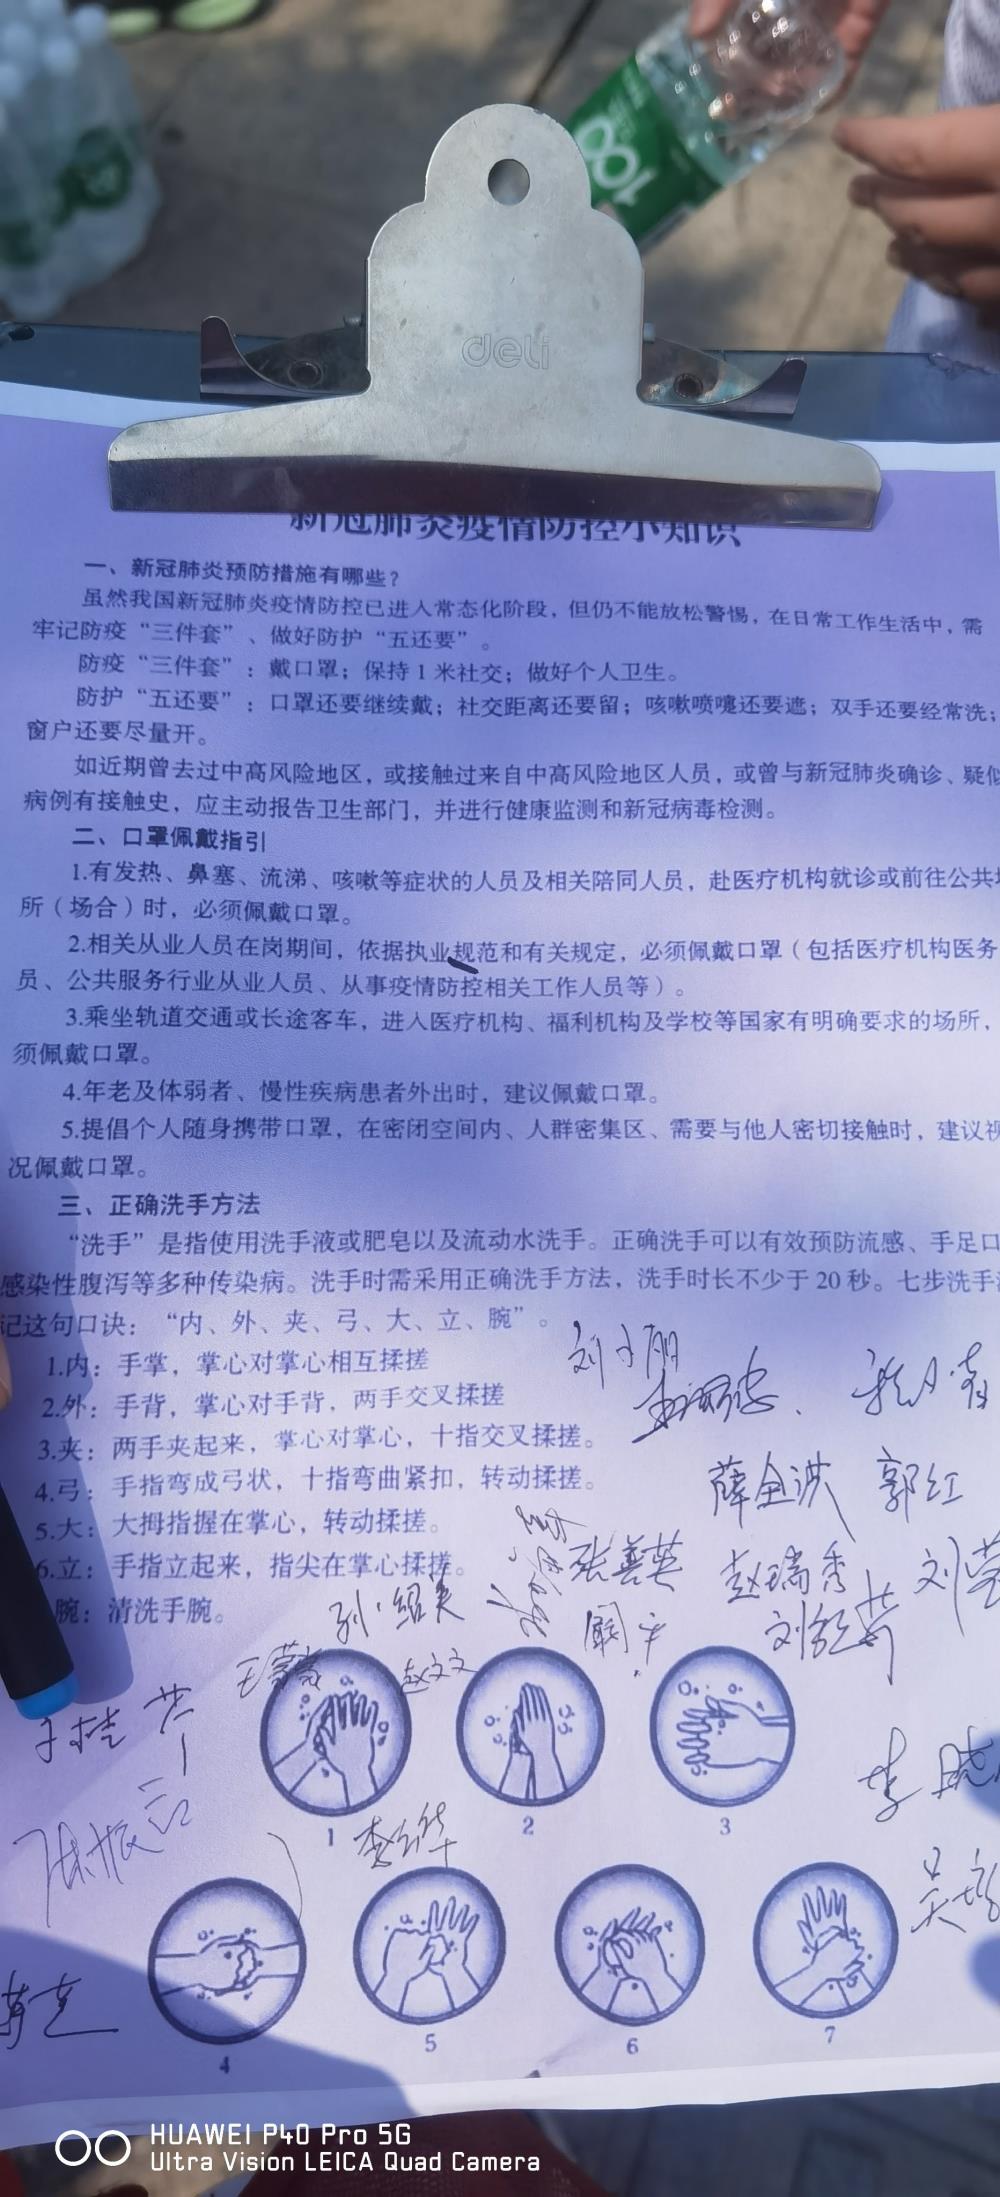 100
deli
新冠肺炎疫情防控小知识
一、新冠肺炎预防措施有哪些？
虽然我国新冠肺炎疫情防控已进入常态化阶段，但仍不能放松警惕，在日常工作生活中，需
牢记防疫“三件套”、做好防护“五还要”。
防疫“三件套”：戴口罩；保持1米社交；做好个人卫生。
防护“五还要”：口罩还要继续戴；社交距离还要留；咳嗽喷嚏还要遮；双手还要经常洗；
窗户还要尽量开。
如近期曾去过中高风险地区，或接触过来自中高风险地区人员，或曾与新冠肺炎确诊、疑似
病例有接触史，应主动报告卫生部门，并进行健康监测和新冠病毒检测。
二、口罩佩戴指引
1.有发热、鼻塞、流涕、咳嗽等症状的人员及相关陪同人员，赴医疗机构就诊或前往公共
所（场合）时，必须佩戴口罩。
2.相关从业人员在岗期间，依据执业规范和有关规定，必须佩戴口罩（包括医疗机构医务
员、公共服务行业从业人员、从事疫情防控相关工作人员等）。
3.乘坐轨道交通或长途客车，进入医疗机构、福利机构及学校等国家有明确要求的场所，
须佩戴口罩。
4.年老及体弱者、慢性疾病患者外出时，建议佩戴口罩。
5.提倡个人随身携带口罩，在密闭空间内、人群密集区、需要与他人密切接触时，建议视
况佩戴口罩。
三、正确洗手方法
“洗手”是指使用洗手液或肥皂以及流动水洗手。正确洗手可以有效预防流感、手足口
感染性腹泻等多种传染病。洗手时需采用正确洗手方法，洗手时长不少于20秒。七步洗手
记这句口诀：“内、外、夹、弓、大、立、腕”。
1.内：手掌，掌心对掌心相互揉搓
2.外：手背，掌心对手背，两手交叉揉搓
3.夹：两手夹起来，掌心对掌心，十指交叉揉搓。
4.弓：手指弯成弓状，十指弯曲紧扣，转动揉搓。
薛金洪 郭红
5.大：大拇指握在掌心，转动揉搓。
6.立：手指立起来，指尖在掌心揉搓。
张善英 赵瑞秀
腕：清洗手腕。
孙绍美
赵文文
1
2
3
4
5
6
7
HUAWEI P40 Pro 5G
Ultra Vision LEICA Quad Camera